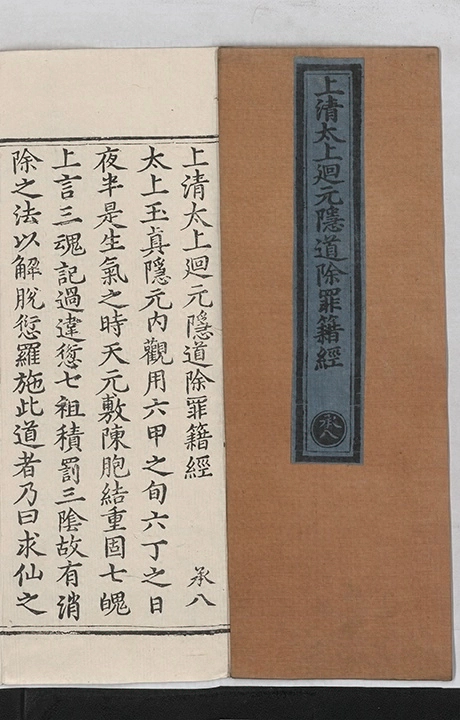 上清太上迴元隱道除罪籍經
承八
上清太上迴元隱道除罪籍經 承八
太上玉真隱元内觀用六甲之旬六丁之日
夜半是生氣之時天元敷陳胞結重固七魄
上言三魂記過違愆七祖積罰三陰故有消
除之法以解脫愆羅施此道者乃曰求仙之